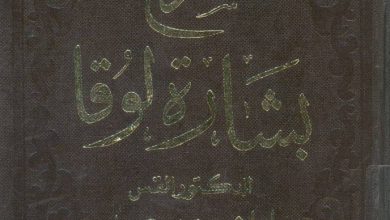 شرح
بشارة لوقا
الدكتور القس